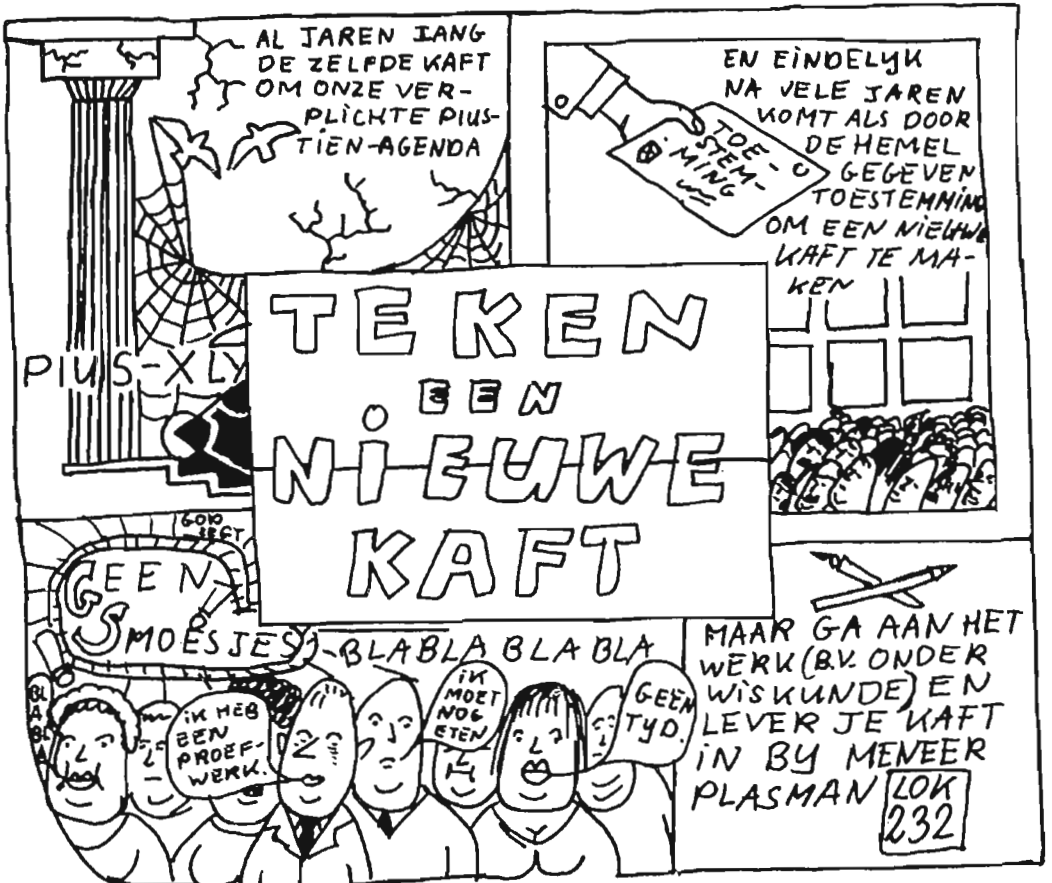 AL JAREN LANG
DE ZELFDE KAFT
OM ONZE VER-
PLICHTE PIUS-
TIEN-AGENDA
PIUS-X LY
EN EINDELYK
NA VELE JAREN
KOMT ALS DOOR
DE HEMEL
GEGEVEN
TOESTEMMING
OM EEN NIEUWE
KAFT TE MA-
KEN
TOE-
STEM-
MING
TEKEN
EEN
NIEUWE
KAFT
GEEN
SMOESJES
-BLABLABLABLABLA
BL
A
BL
A
IK HEB
EEN
PROEF-
WERK.
IK
MOET
NOG
ETEN
GEEN
TYD.
MAAR GA AAN HET
WERK (B.V. ONDER
WISKUNDE) EN
LEVER JE KAFT
IN BY MENEER
PLASMAN
LOK
232